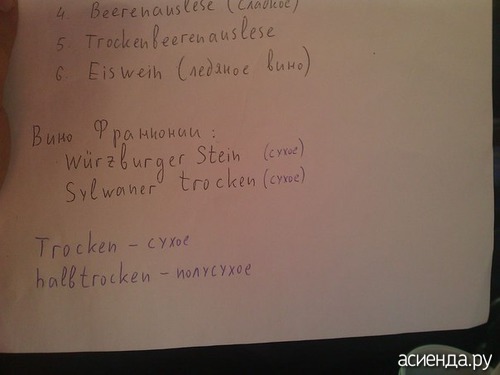 4. Beerenauslese (сладкое)
5. Trockenbeerenauslese
6. Eiswein (ледяное вино)
Вино Франконии:
Würzburger Stein (сухое)
Sylwaner trocken (сухое)
Trocken – сухое
halbtrocken – полусухое
асиенда.ру